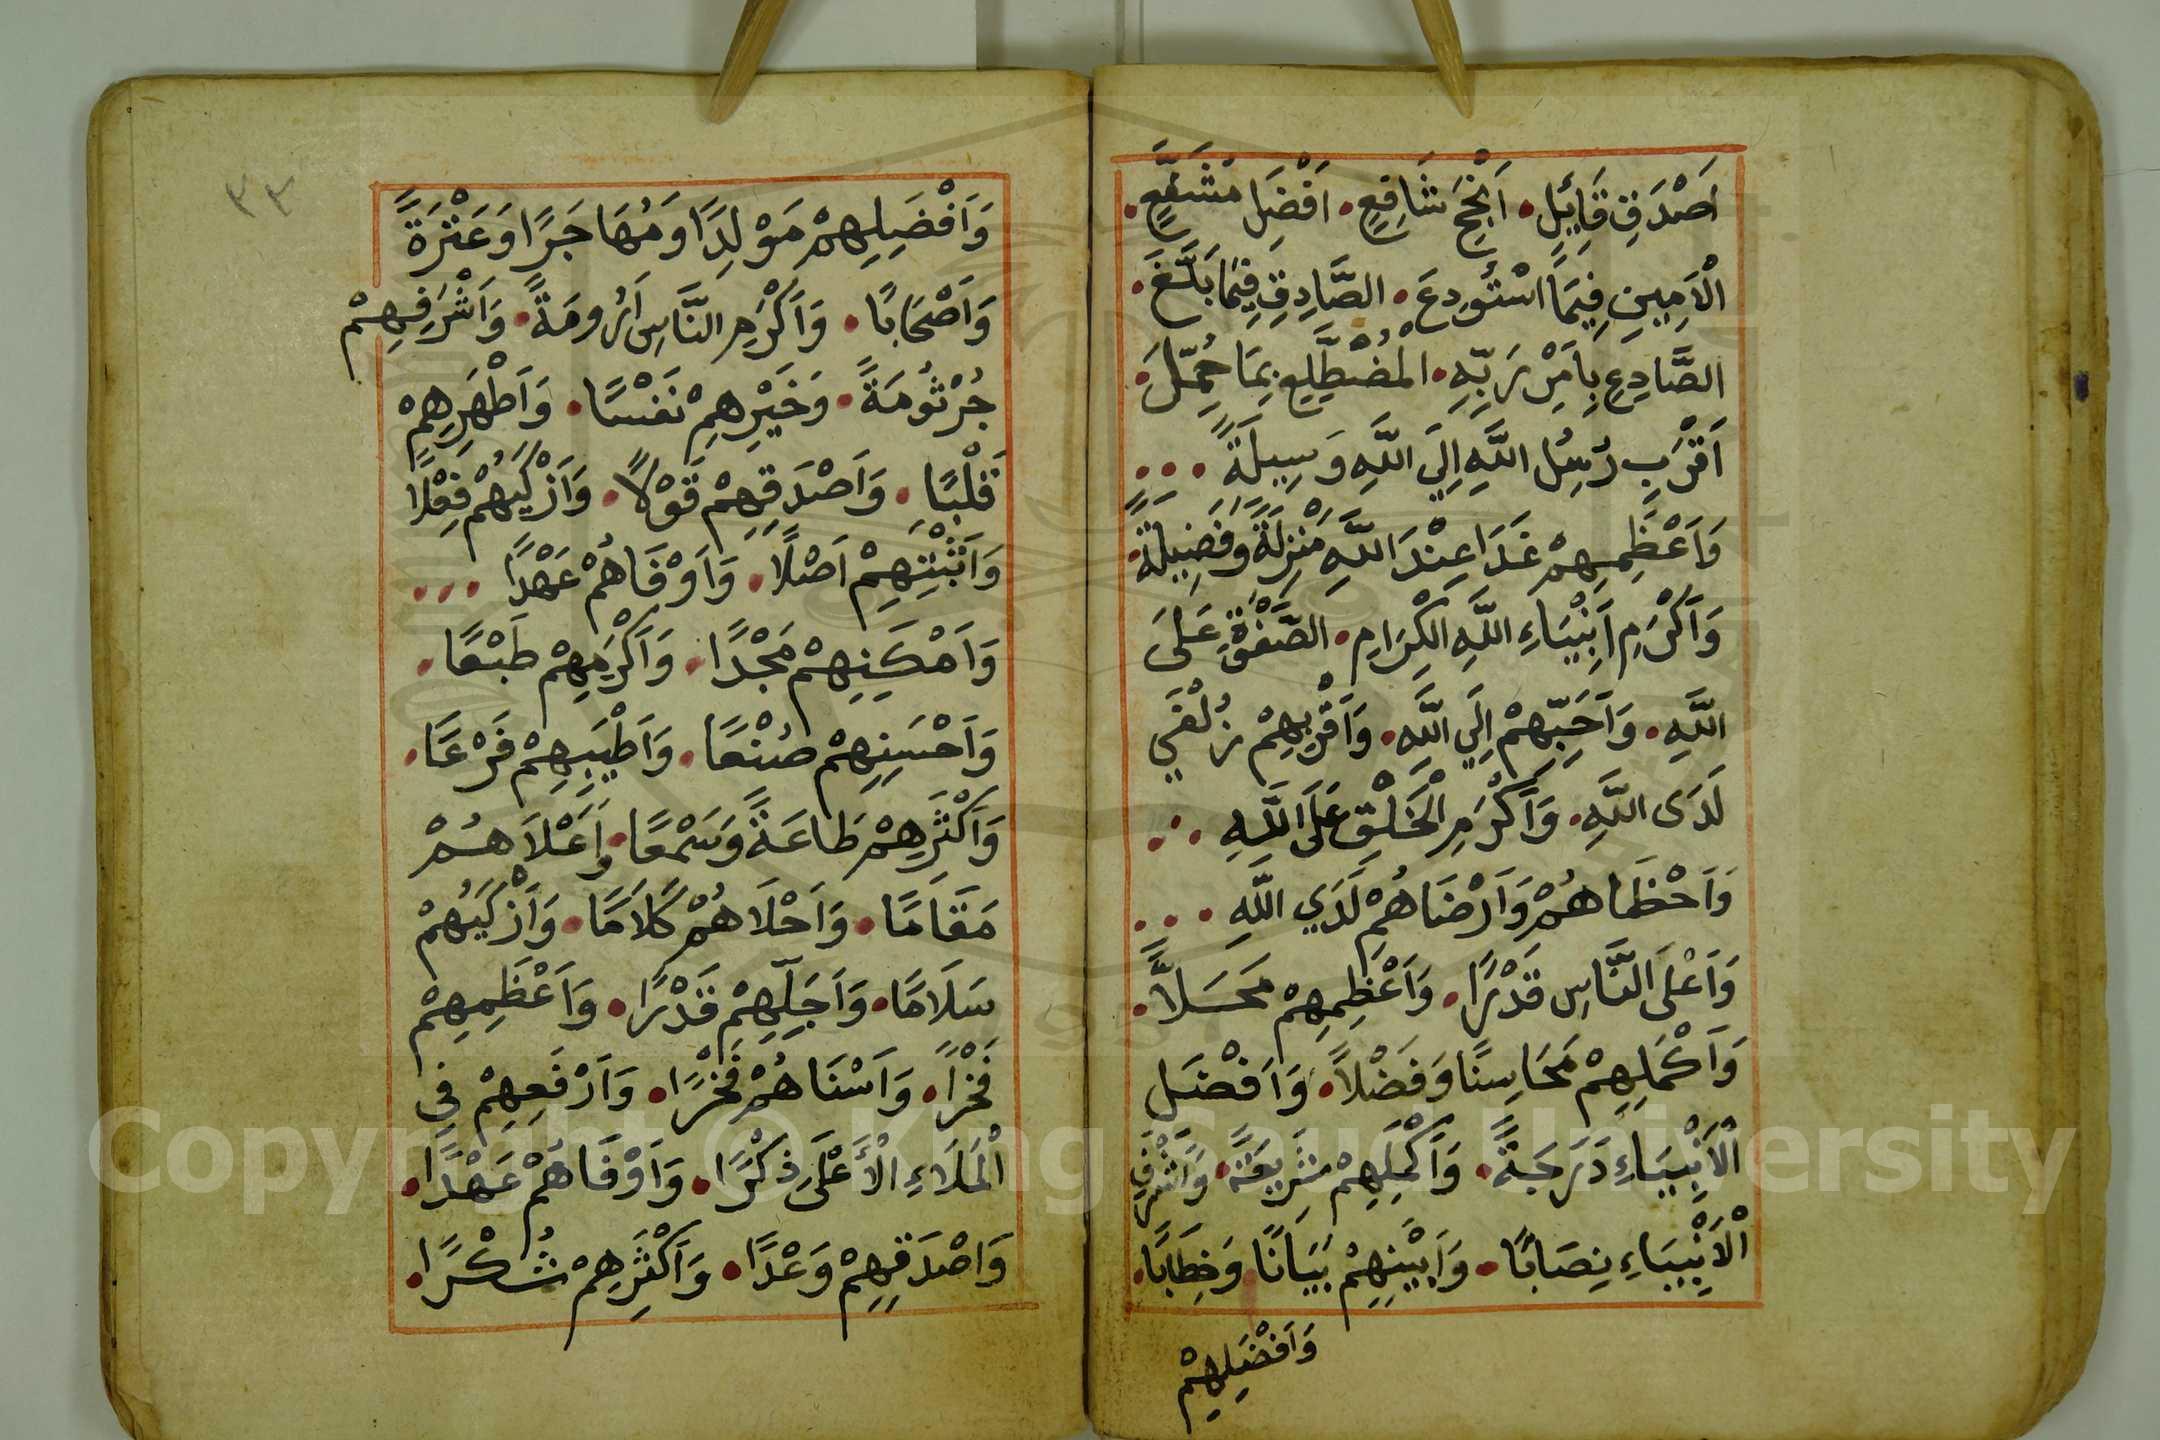 اَصْدَقِ قَائِلٍ • اَنْجَحِ شَافِعٍ • اَفْضَلِ مُشَفَّعٍ •
الْاَمِينِ فِيمَا اسْتُودِعَ • الصَّادِقِ فِيمَا بَلَّغَ •
الصَّادِعِ بِاَمْرِ رَبِّهِ • الْمُضْطَلِعِ بِمَا حُمِّلَ •
اَقْرَبِ رُسُلِ اللَّهِ اِلَي اللَّهِ وَسِيلَةً • • •
وَاَعْظَمِهِمْ غَدًا عِنْدَ اللَّهِ مَنْزِلَةً وَفَضِيلَةً •
وَاَكْرَمِ اَنْبِيَاءِ اللَّهِ الْكِرَامِ • الصَّفْوَةِ عَلَى
اللَّهِ • وَاَحَبِّهِمْ اِلَي اللَّهِ • وَاَقْرَبِهِمْ زُلْفَي
لَدَى اللَّهِ • وَاَكْرَمِ الْخَلْقِ عَلَى اللَّهِ • • •
وَاَحْظَاهُمْ وَاَرْضَاهُمْ لَدَي اللَّهِ • • •
وَاَعْلَى النَّاسِ قَدْرًا • وَاَعْظَمِهِمْ مَحَلًّا •
وَاَكْمَلِهِمْ مَحَاسِنًا وَفَضْلًا • وَاَفْضَلِ
الْاَنْبِيَاءِ دَرَجَةً • وَاَكْمَلِهِمْ شَرِيعَةً • وَاَشْرَفِ
الْاَنْبِيَاءِ نِصَابًا • وَاَبْيَنِهِمْ بَيَانًا وَخِطَابًا •
وَاَفْضَلِهِمْ
٣٣
وَاَفْضَلِهِمْ مَوْلِدًا وَمُهَاجَرًا وَعَتْرَةً
وَاَصْحَابًا • وَاَكْرَمِ النَّاسِ اَرُومَةً • وَاَشْرَفِهِمْ
جُرْثُومَةً • وَخَيْرِهِمْ نَفْسًا • وَاَطْهَرِهِمْ
قَلْبًا • وَاَصْدَقِهِمْ قَوْلًا • وَاَزْكَيهُمْ فِعْلًا
وَاَثْبَتِهِمْ اَصْلًا • وَاَوْفَاهُمْ عَهْدًا • • •
وَاَمْكَنِهِمْ مَجْدًا • وَاَكْرَمِهِمْ طَبْعًا •
وَاَحْسَنِهِمْ صُنْعًا • وَاَطْيَبِهِمْ فَرْعًا •
وَاَكْثَرِهِمْ طَاعَةً وَسَمْعًا • وَاَعْلَاهُمْ
مَقَامًا • وَاَحْلَاهُمْ كَلَامًا • وَاَزْكَيهُمْ
سَلَامًا • وَاَجَلِّهِمْ قَدْرًا • وَاَعْظَمِهِمْ
فَخْرًا • وَاَسْنَاهُمْ فَخْرًا • وَاَرْفَعِهِمْ فِي
الْمَلَاءِ الْاَعْلَى ذِكْرًا • وَاَوْفَاهُمْ عَهْدًا •
وَاَصْدَقِهِمْ وَعْدًا • وَاَكْثَرِهِمْ شُكْرًا •
Copyright © King Saud University